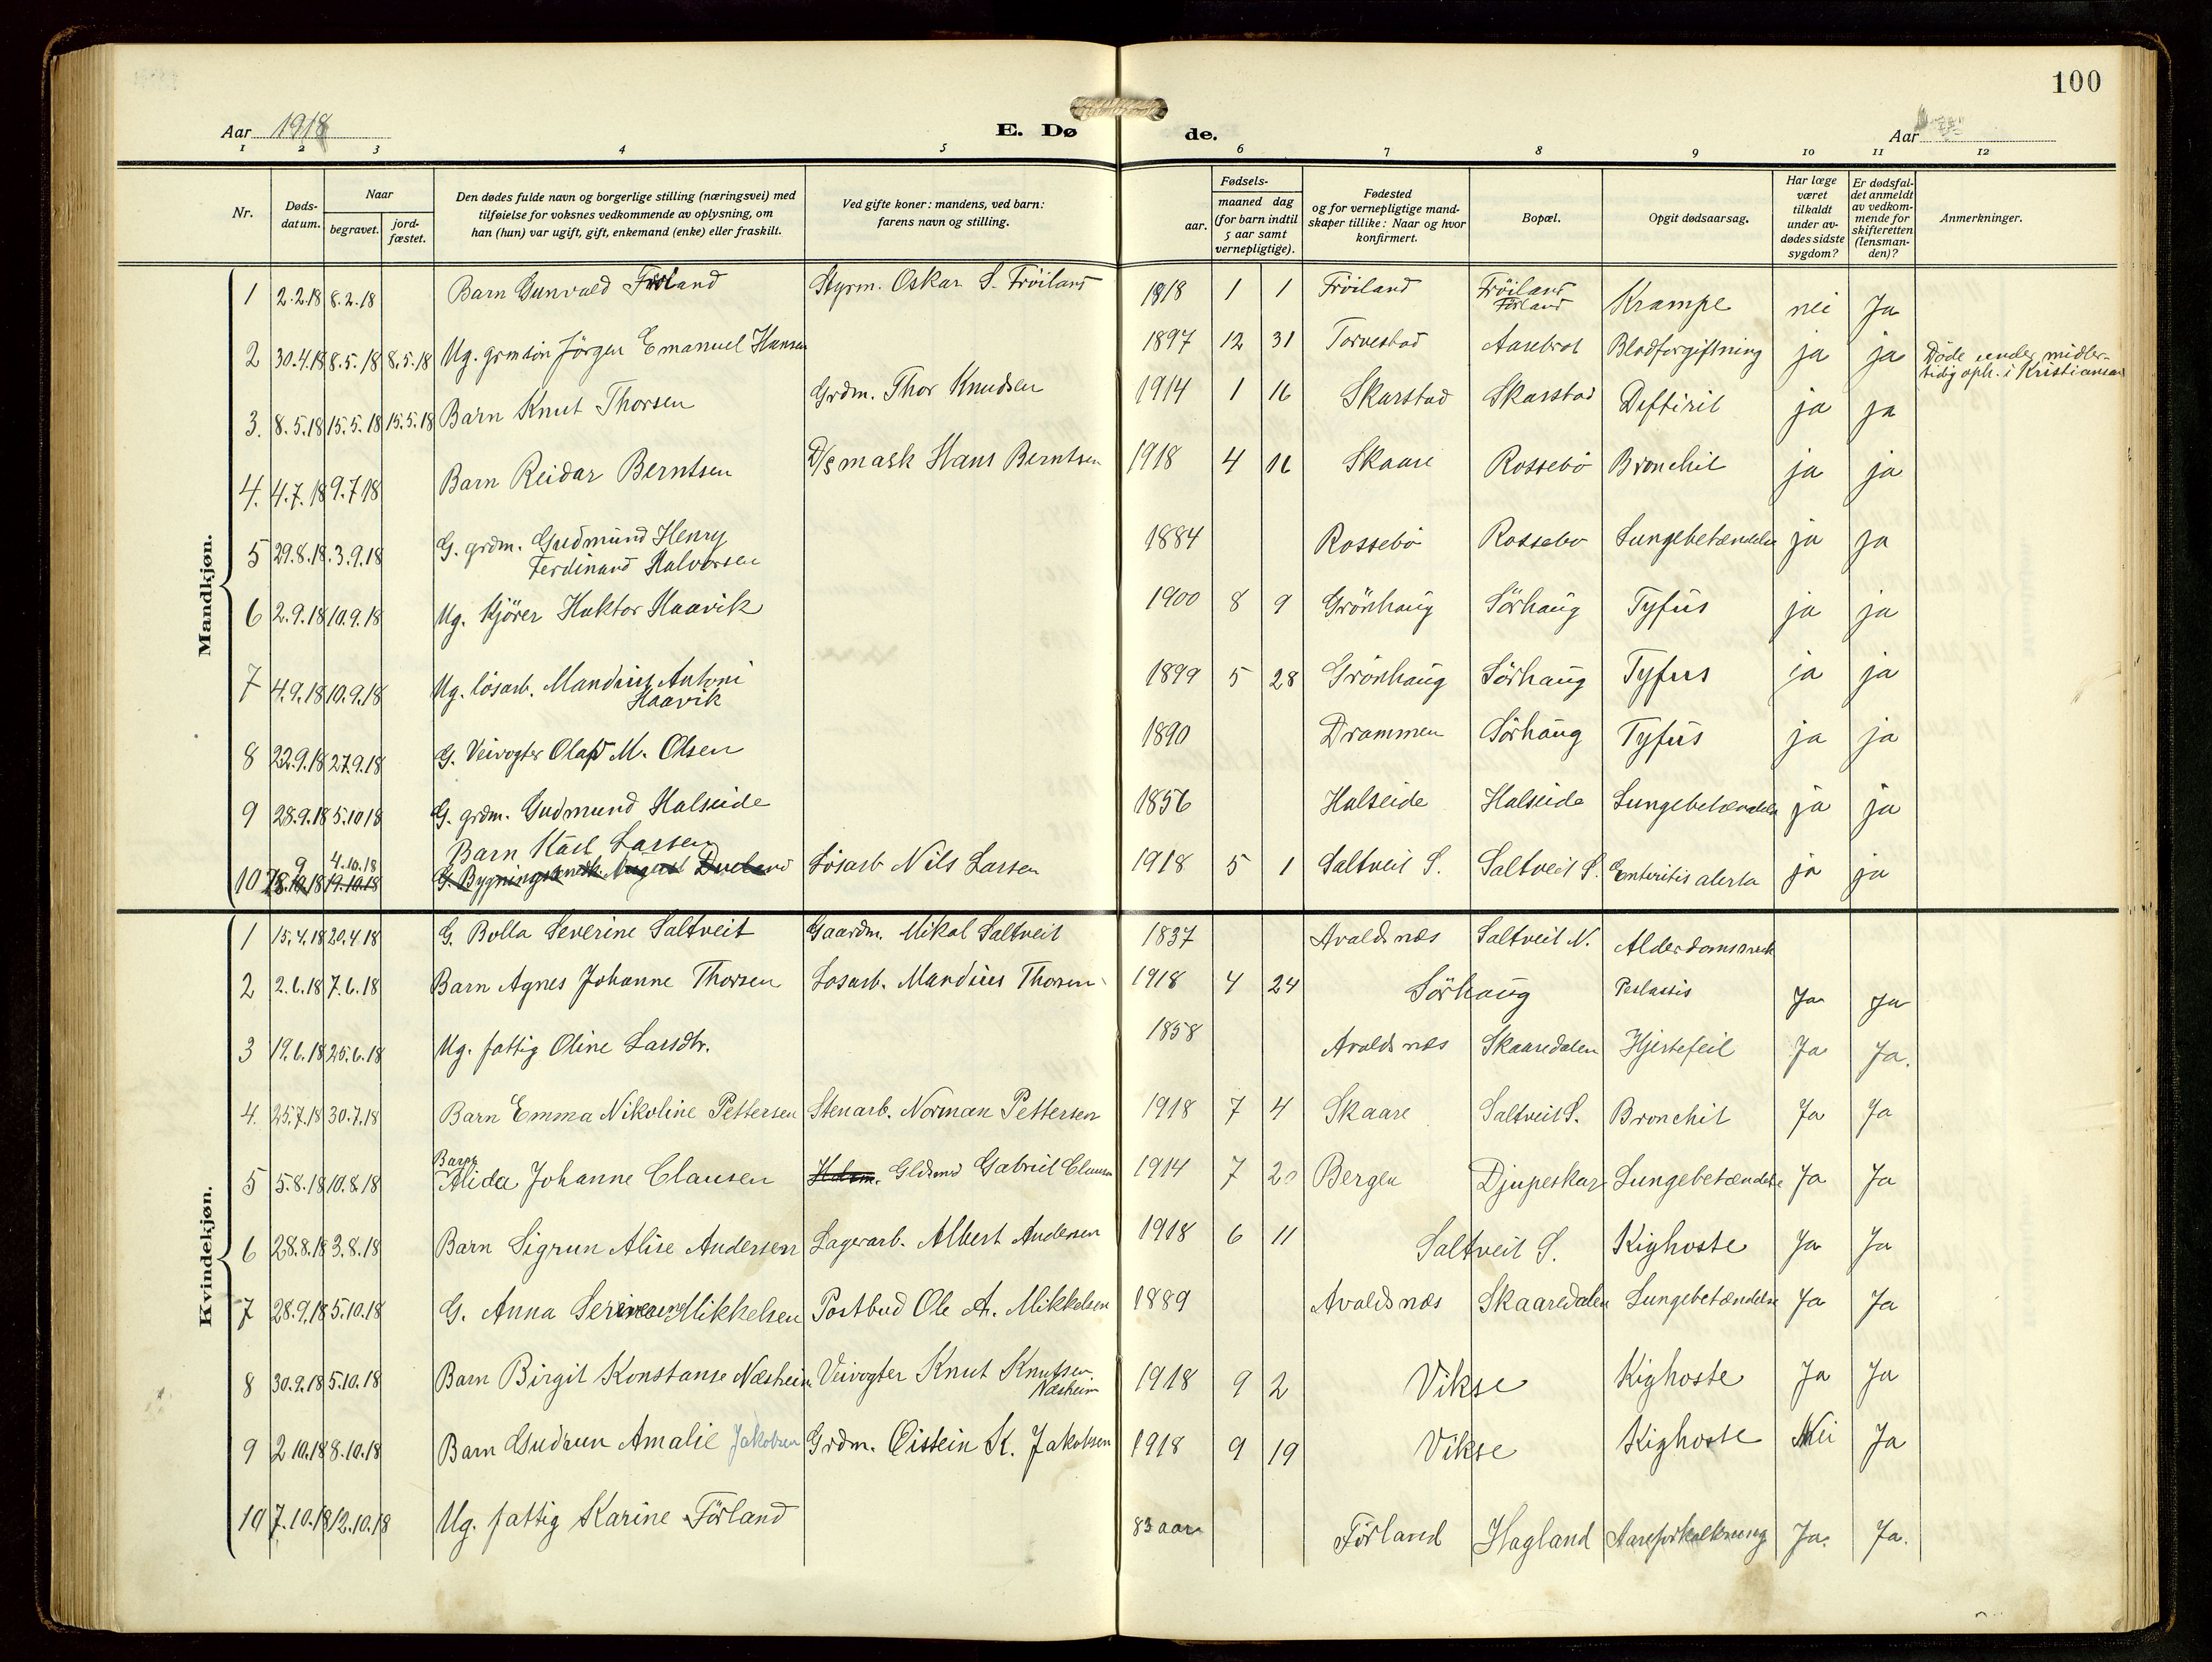 100
Aar 1918
E. Døde.
Aar
1 2 3 4 5 6 7 8 9 10 11 12
Nr. Døds-datum. Naar begravet. jord-fæstet. Den dødes fulde navn og borgerlige stilling (næringsvei) med tilføielse for voksnes vedkommende av oplysning, om han (hun) var ugift, gift, enkemand (enke) eller fraskilt. Ved gifte koner: mandens, ved barn: farens navn og stilling. Fødsels- aar. maaned dag (for barn indtil 5 aar samt vernepligtige). Fødested og for vernepligtige mand-skaper tillike: Naar og hvor konfirmert. Bopæl. Opgit dødsaarsag. Har læge været tilkaldt under av-dødes sidste sygdom? Er dødsfal-det anmeldt av vedkom-mende for skifteretten (lensman-den)? Anmerkninger.
Mandkjøn.
1 2.2.18 8.2.18 Barn Gunvald Förland Styrm. Oskar S. Fröiland 1918 1 1 Fröiland Fröiland Förland Krampe nei Ja
2 30.4.18 8.5.18 8.5.18 Ug. grmsön Jörgen Emanuel Hansen 1897 12 31 Torvestad Aasebrot Blodforgiftning ja ja Döde under midler-tidig oph. i Kristiansan
3. 8.5.18 15.5.18 15.5.18 Barn Knut Thorsen Grdm. Thor Knudsen 1914 1 16 Skarstad Skarstad Deftirit ja ja
4. 4.7.18 9.7.18 Barn Reidar Berntsen D/s mask Hans Berntsen 1918 4 16 Skaare Rossebö Bronchit ja ja
5 29.8.18 3.9.18 G. grdm. Gudmund Henry Ferdinand Halvorsen 1884 Rossebö Rossebö Lungebetændelse ja ja
6 2.9.18 10.9.18 Ug. Kjörer Haktor Haavik 1900 8 9 Grönhaug Sörhaug Tyfus ja ja
7 4.9.18 10.9.18 Ug. lösarb. Mandius Antoni Haavik 1899 5 28 Grönhaug Sörhaug Tyfus ja ja
8 22.9.18 27.9.18 G. Veivogter Olaf M. Olsen 1890 Drammen Sörhaug Tyfus ja ja
9 28.9.18 5.10.18 G. grdm. Gudmund Halseide 1856 Halseide Halseide Lungebetændelse ja ja
10 4.10.18 19.10.18 Barn Karl Larsen G. Bygningssnedk. August Lösarb Nils Larsen 1918 5 1 Saltveit S. Saltveit S. Enteritis ja ja
Kvindekjøn.
1 15.4.18 20.4.18 G. Bolla Severine Saltveit Gaardm. Mikal Saltveit 1837 Avaldsnæs Saltveit N. Alderdomssvak
2 2.6.18 7.6.18 Barn Agnes Johanne Thorsen Lösarb. Mandius Thorsen 1918 4 24 Sörhaug Ja Ja
3 19.6.18 25.6.18 Ug. fattig Oline Larsdtr. 1858 Avaldsnæs Skaaredalen Hjertefeil Ja Ja.
4. 25.7.18 30.7.18 Barn Emma Nikoline Pettersen Stenarb. Norman Pettersen 1918 7 4 Skaare Saltveit S. Bronchit Ja Ja
5 5.8.18 10.8.18 Barn Alida Johanne Clausen Hdsm. Gldsmd Gabriel Clausen 1914 7 20 Bergen Djupeskar Lungebetændelse Ja Ja
6 28.8.18 3.8.18 Barn Sigrun Alise Andersen Lagerarb. Albert Andersen 1918 6 11 Saltveit S. Kighoste Ja Ja
7 28.9.18 5.10.18 G. Anna Mikkelsen Postbud Ole A. Mikkelsen 1889 Avaldsnæs Skaaredalen Lungebetændelse Ja Ja
8 30.9.18 5.10.18 Barn Birgit Konstanse Næsheim Veivogter Knut Knutsen Næsheim 1918 9 2 Vikse Kighoste Ja Ja
9 2.10.18 8.10.18 Barn Gudrun Amalie Jakobsen Grdm. Öistein K. Jakobsen 1918 9 19 Vikse Kighoste Nei Ja
10 7.10.18 12.10.18 Ug. fattig Karine Förland 83 aar Förland Hagland Aareforkalkning Ja. Ja.